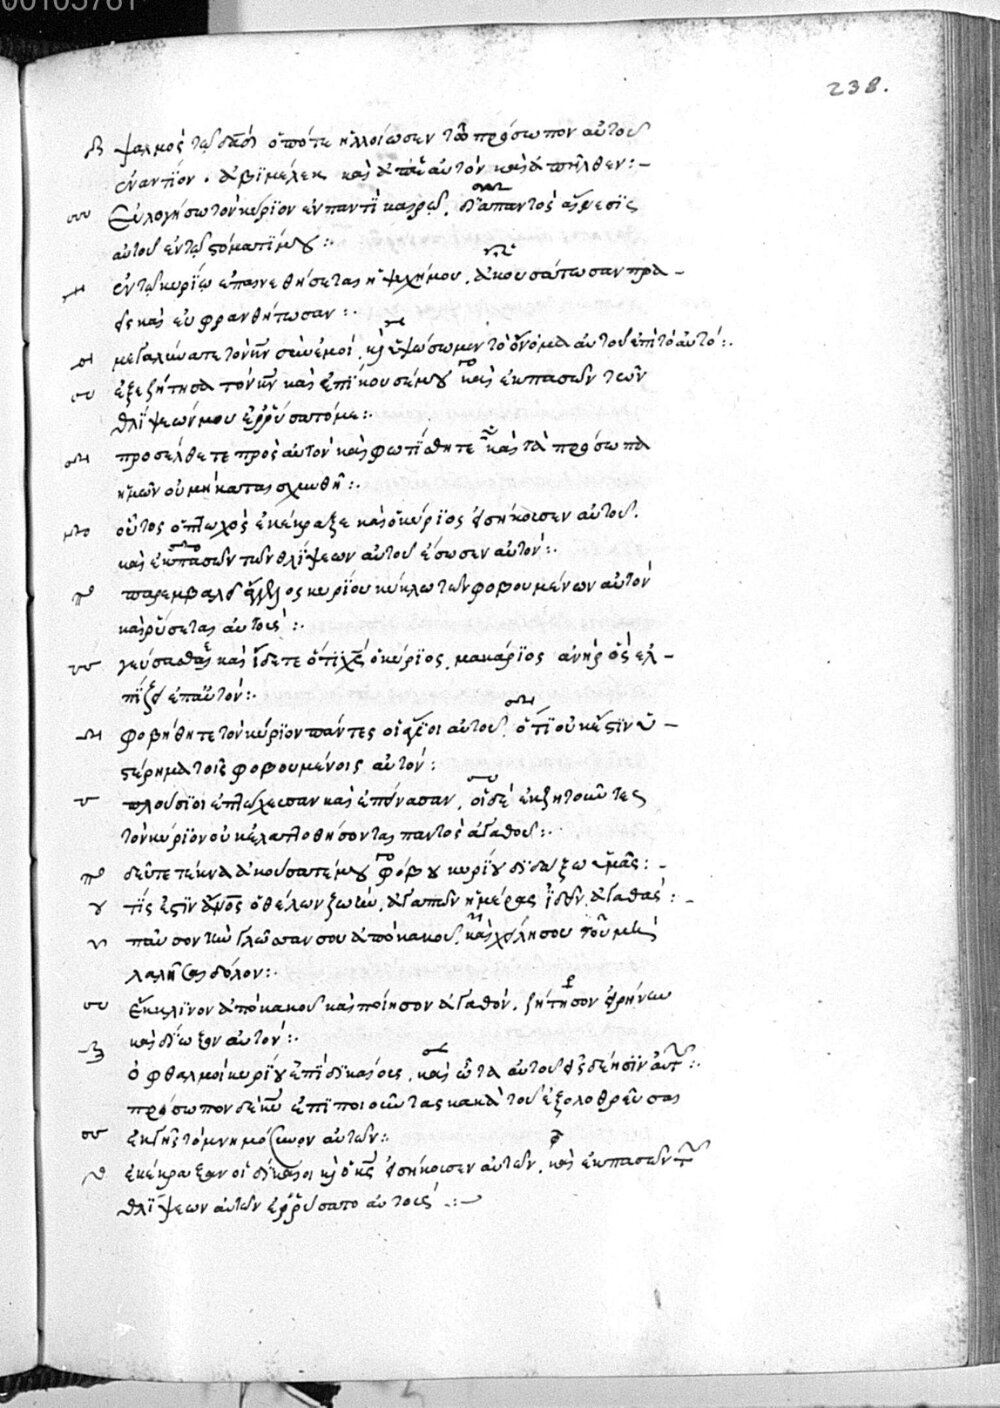 00105761
238.
ψαλμὸς τῷ δαδ ὁπότε ἠλλοίωσεν τὸ πρόσωπον αὐτοῦ
ἐναντίον . ἀβιμέλεχ καὶ ἀπέλυσεν αὐτὸν καὶ ἀπῆλθεν :–
Εὐλογήσω τὸν κύριον ἐν παντὶ καιρῷ, διαπαντὸς αἴνεσις
αὐτοῦ ἐν τῷ στόματί μου :.
ἐν τῷ κυρίῳ ἐπαινεθήσεται ἡ ψυχή μου, ἀκουσάτωσαν πρα–
εῖς καὶ εὐφρανθήτωσαν :.
μεγαλύνατε τὸν κν σὺν ἐμοί, κὶ ὑψώσωμεν τὸ ὄνομα αὐτοῦ ἐπὶ τὸ αὐτό :.
ἐξεζήτησα τὸν κν καὶ ἐπήκουσέ μου καὶ ἐκ πασῶν τῶν
θλίψεών μου ἐρρύσατό με :.
προσέλθετε πρὸς αὐτὸν καὶ φωτίσθητε καὶ τὰ πρόσωπα
ἡμῶν οὐ μὴ καταισχυνθῇ :.
οὗτος ὁ πτωχὸς ἐκέκραξε καὶ ὁ κύριος εἰσήκουσεν αὐτοῦ.
καὶ ἐκ πασῶν τῶν θλίψεων αὐτοῦ ἔσωσεν αὐτόν :.
παρεμβαλεῖ ἄγγελος κυρίου κύκλῳ τῶν φοβουμένων αὐτὸν
καὶ ῥύσεται αὐτούς :.
γεύσασθαι καὶ ἴδετε ὅτι χς ὁ κύριος, μακάριος ἀνὴρ ὃς ἐλ–
πίζει ἐπ' αὐτόν :.
φοβήθητε τὸν κύριον πάντες οἱ ἅγιοι αὐτοῦ, ὅτι οὐκ ἔστιν ὑ–
στέρημα τοῖς φοβουμένοις αὐτόν :
πλούσιοι ἐπτώχευσαν καὶ ἐπείνασαν, οἱ δὲ ἐκζητοῦντες
τὸν κύριον οὐκ ἐλαττωθήσονται παντὸς ἀγαθοῦ :.
δεῦτε τέκνα ἀκούσατέ μου φόβον κυρίου διδάξω ὑμᾶς : –
τίς ἐστιν ἄνος ὁ θέλων ζωὴν, ἀγαπῶν ἡμέρας ἰδεῖν, ἀγαθάς : –
παῦσον τὴν γλῶσσαν σου ἀπὸ κακοῦ, καὶ χείλη σου τοῦ μὴ
λαλῆσαι δόλον :.
ἔκκλινον ἀπὸ κακοῦ καὶ ποίησον ἀγαθόν, ζήτησον εἰρήνην
καὶ δίωξον αὐτόν :.
ὀφθαλμοὶ κυρίου ἐπὶ δικαίους, καὶ ὦτα αὐτοῦ εἰς δέησιν αὐτ :.
πρόσωπον δὲ κυ ἐπὶ ποιοῦντας κακὰ τοῦ ἐξολοθρεῦσαι
ἐκ γῆς τὸ μνημόσυνον αὐτῶν :.
ἐκέκραξαν οἱ δίκαιοι κὶ ὁ κς εἰσήκουσεν αὐτῶν, καὶ ἐκ πασῶν τ
θλίψεων αὐτῶν ἐρρύσατο αὐτούς :–